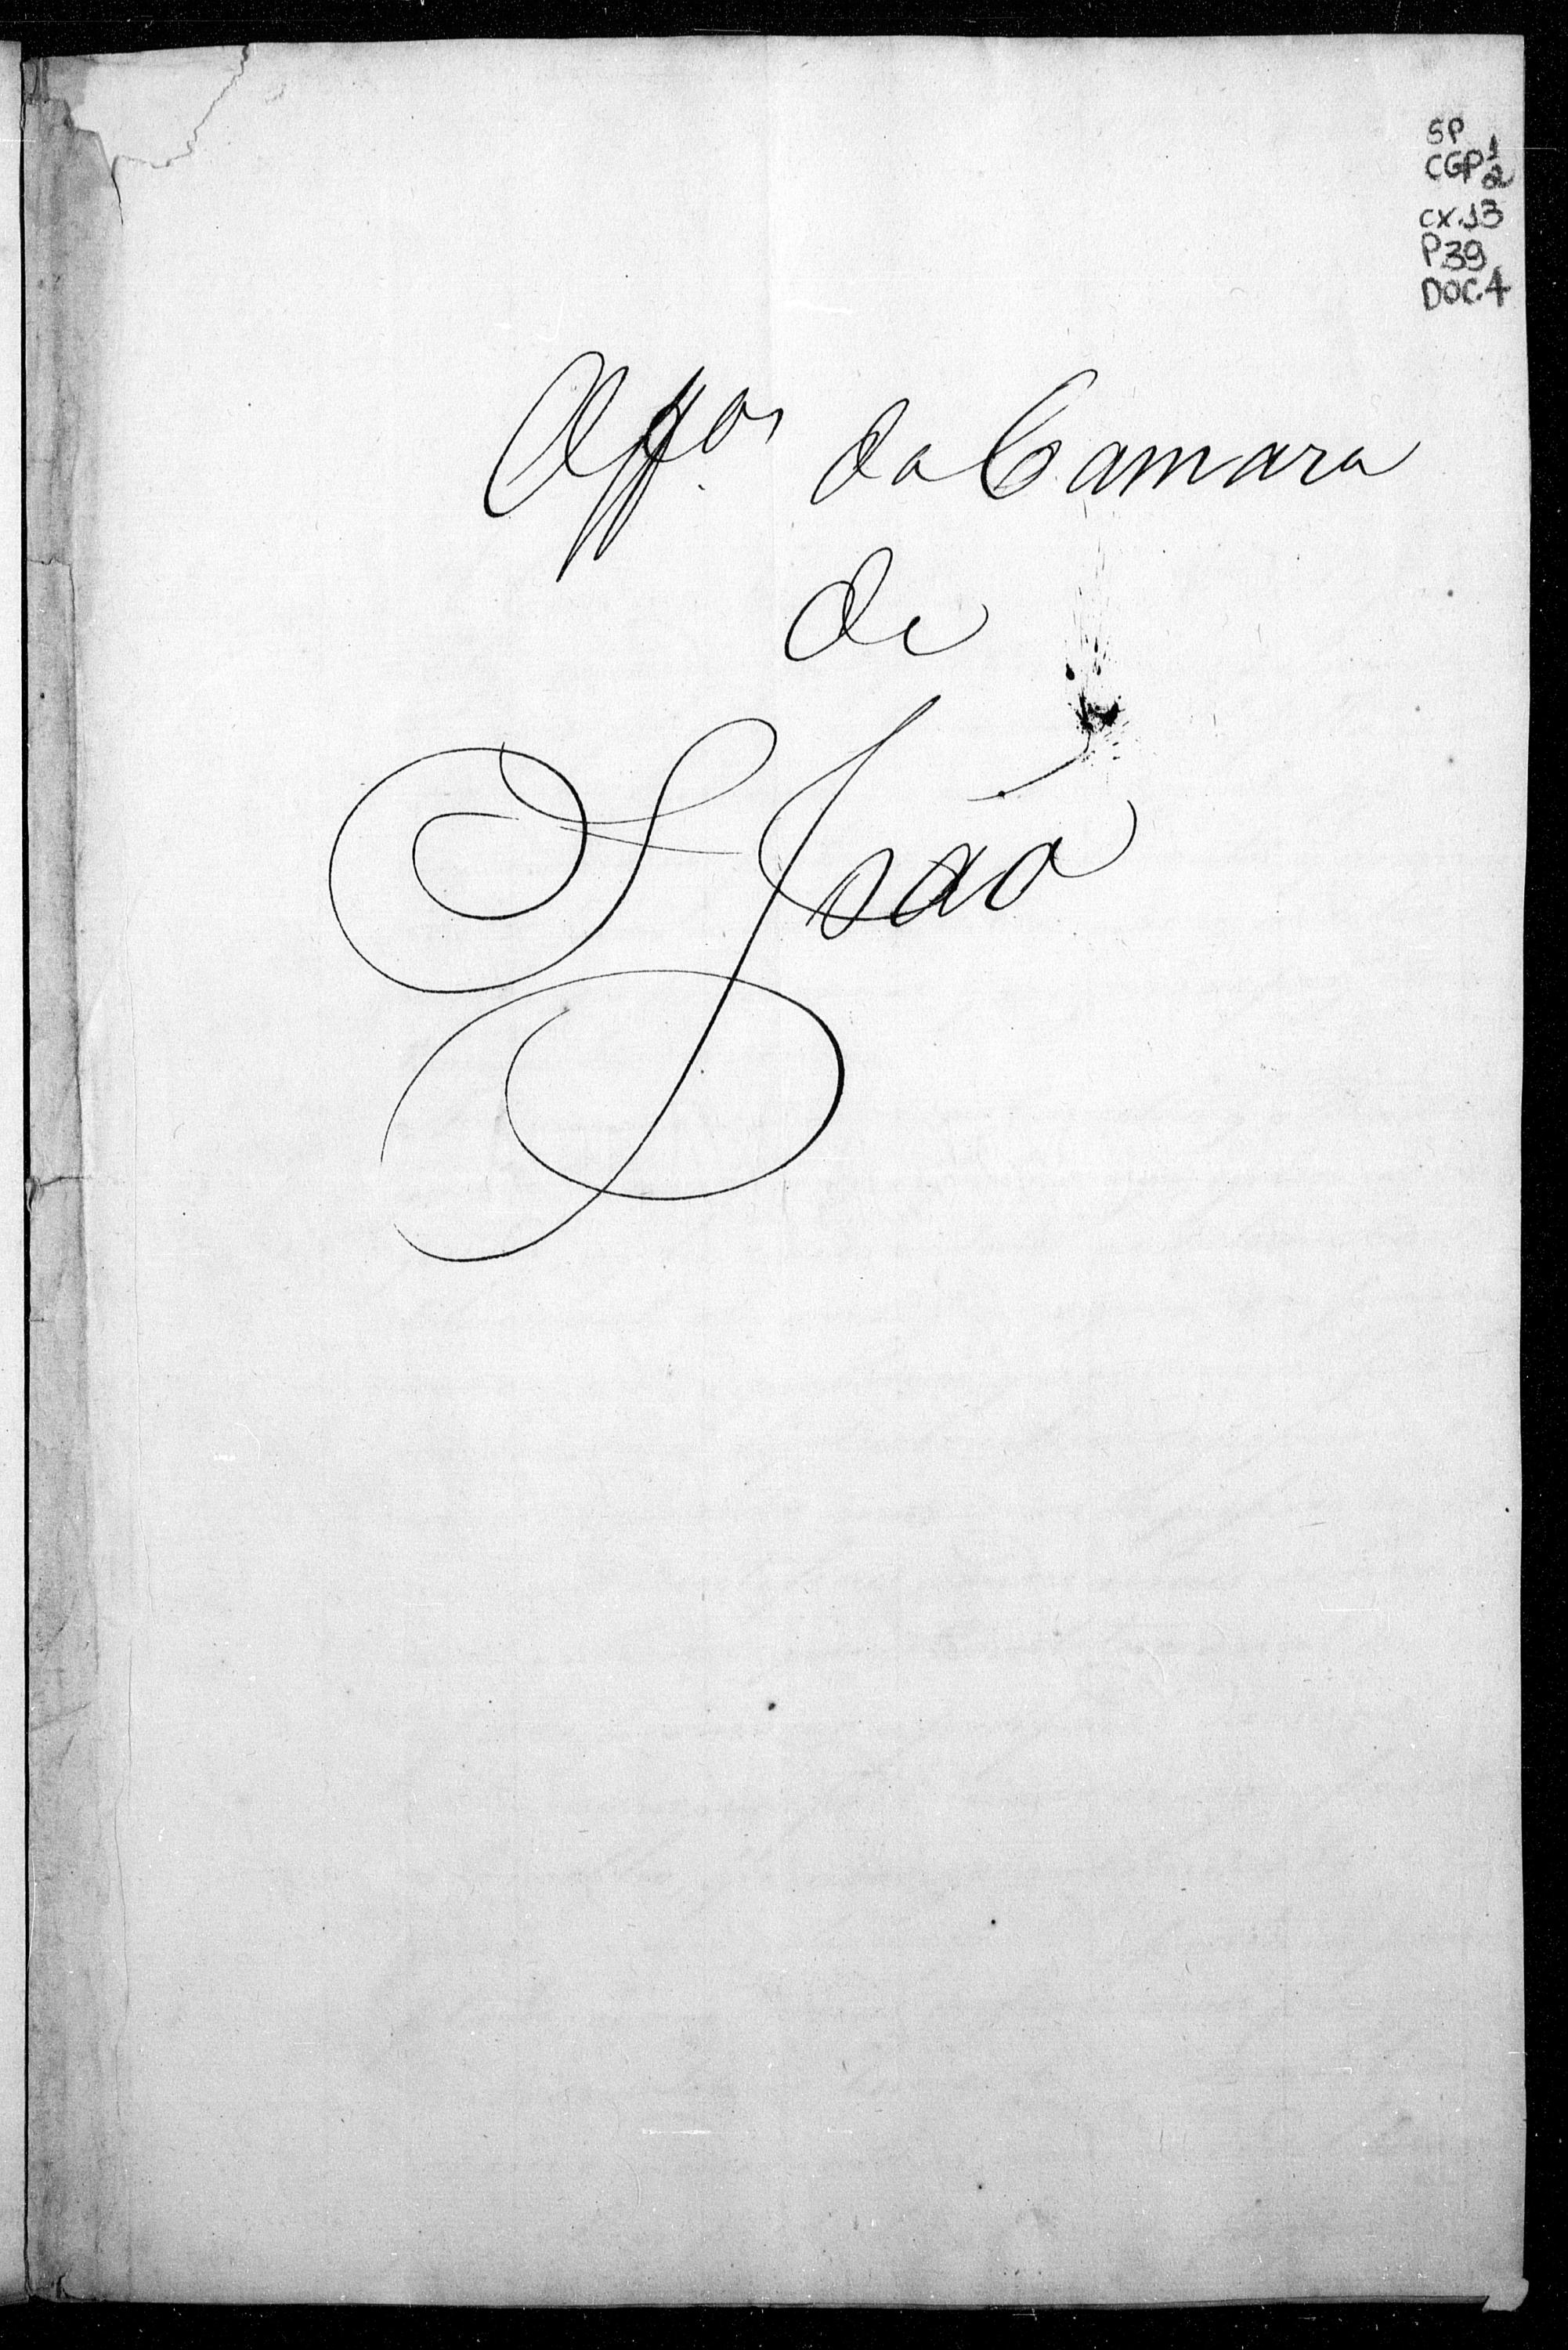 SP
CGP1
2
CX.13
P39
DOC.4
Offos da Camara
de
S. João